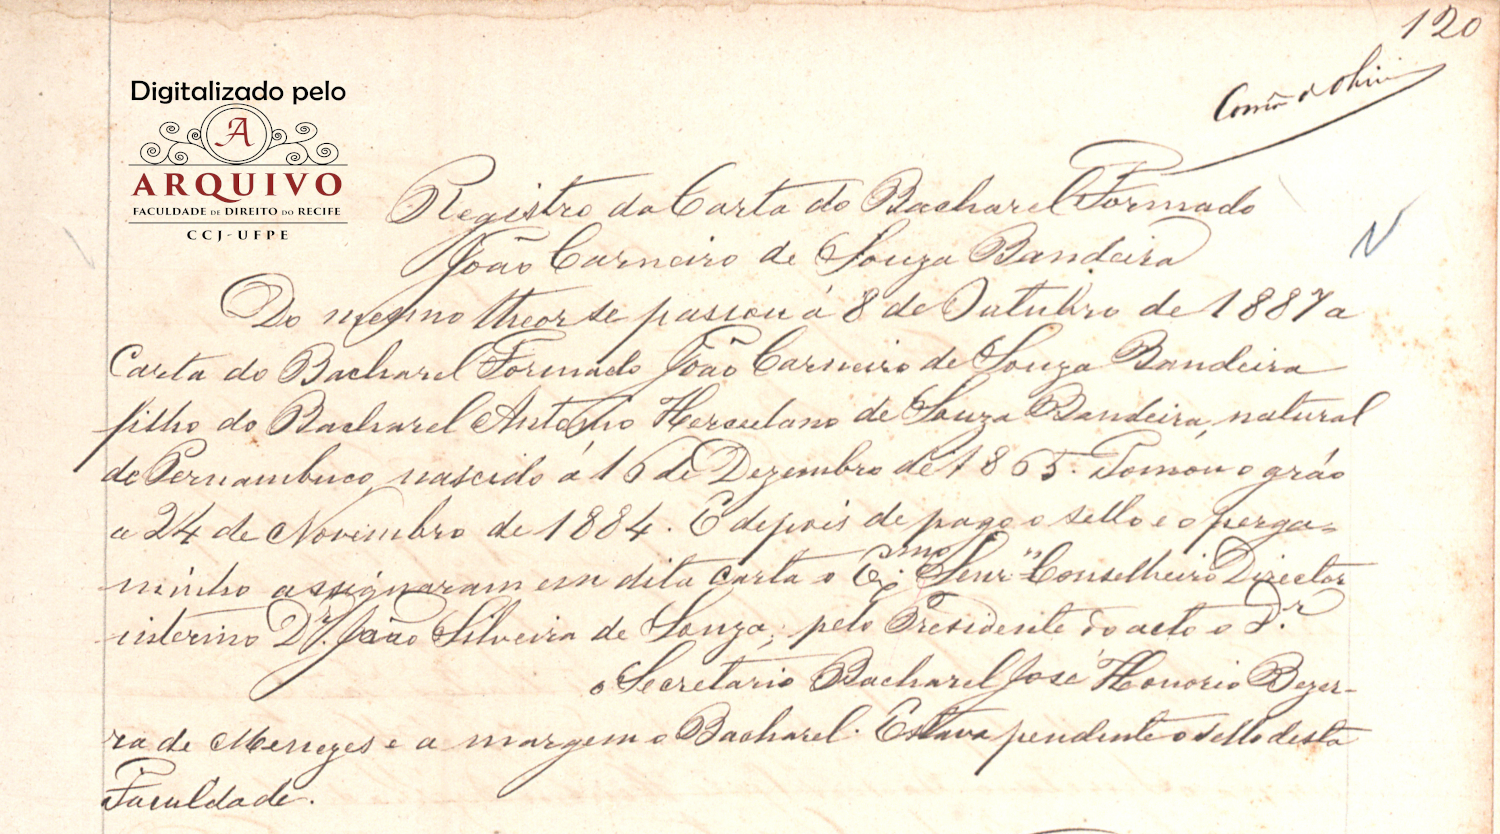 120
Digitalizado pelo
A
ARQUIVO
FACULDADE DE DIREITO DO RECIFE
CCJ-UFPE
Registro da Carta do Bacharel Formado
João Carneiro de Souza Bandeira
Do mesmo theor se passou á 8 de Outubro de 1887 a
Carta do Bacharel Formado João Carneiro de Souza Bandeira
filho do Bacharel Antonio Herculano de Souza Bandeira, natural
de Pernambuco, nascido á 16 de Dezembro de 1865. Tomou o gráo
a 24 de Novembro de 1884. E depois de pago o sello e o perga-
minho assignaram em dita carta o Exmo Senr Conselheiro Director
interino Dr. João Silveira de Souza; pelo Presidente do acto o Dr
o Secretario Bacharel José Honorio Bezer-
ra de Menezes e a margem o Bacharel. Estava pendente o sello desta
Faculdade.